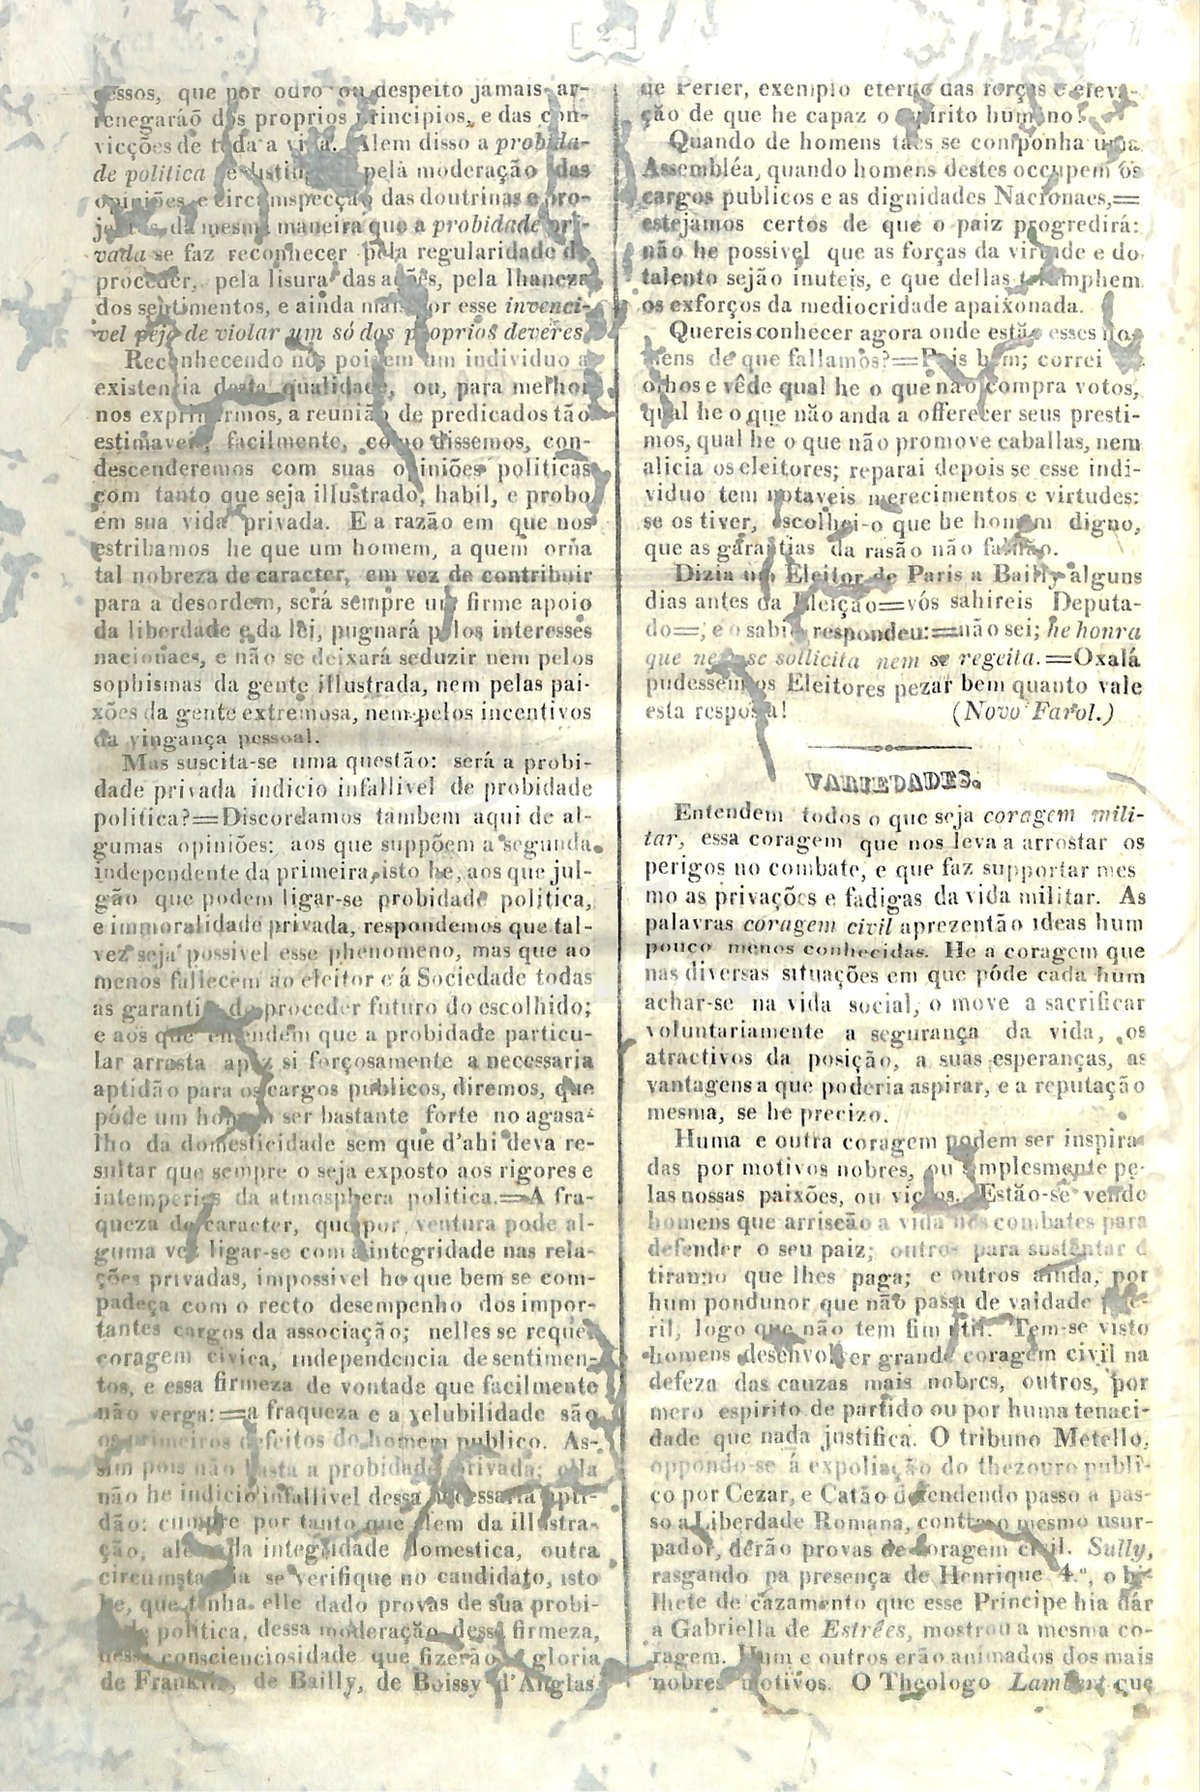 [ 2 ]
que por odio ou despeito jamais ar-
renegaráõ dos proprios principios, e das con-
vicções de toda a vida. Alem disso a probida-
de politica se distingue pela moderação das
opiniões, e circumspecção das doutrinas e pro-
da mesma maneira que a probidade pri-
vada se faz reconhecer pela regularidade de
proceder, pela lisura das ações, pela lhaneza
dos sentimentos, e ainda mais por esse invenci-
vel pejo de violar um só dos proprios deveres.
Reconhecendo nós pois em um individuo a
existencia desta qualidade, ou, para melhor
nos exprimirmos, a reunião de predicados tão
estimaveis, facilmente, como dissemos, con-
descenderemos com suas opiniões politicas
com tanto que seja illustrado, habil, e probo
em sua vida privada. E a razão em que nos
estribamos he que um homem, a quem orna
tal nobreza de caracter, em vez de contribuir
para a desordem, será sempre um firme apoio
da liberdade e da lei, pugnará pelos interesses
nacionaes, e não se deixará seduzir nem pelos
sophismas da gente illustrada, nem pelas pai-
xões da gente extremosa, nem pelos incentivos
da vingança pessoal.
Mas suscita-se uma questão: será a probi-
dade privada indicio infallivel de probidade
politica?=Discordamos tambem aqui de al-
gumas opiniões: aos que suppõem a segunda
independente da primeira, isto he, aos que jul-
gão que podem ligar-se probidade politica,
e immoralidade privada, respondemos que tal-
vez seja possivel esse phenomeno, mas que ao
menos fallecem ao eleitor e á Sociedade todas
as garantias do proceder futuro do escolhido;
e aos que entendem que a probidade particu-
lar arrasta apoz si forçosamente a necessaria
aptidão para os cargos publicos, diremos, que
póde um homem ser bastante forte no agasa-
lho da domesticidade sem que d'ahi deva re-
sultar que sempre o seja exposto aos rigores e
intemperies da atmosphera politica.=A fra-
queza de caracter, que por ventura pode al-
guma vez ligar-se com a integridade nas rela-
ções privadas, impossivel he que bem se com-
padeça com o recto desempenho dos impor-
tantes cargos da associação; nelles se requer
coragem civica, independencia de sentimen-
tos, e essa firmeza de vontade que facilmente
não verga:=a fraqueza e a velubilidade são
os primeiros defeitos do homem publico. As-
sim pois não basta a probidade privada; ella
não he indicio infallivel dessa necessaria apti-
dão: cumpre por tanto que alem da illustra-
ção, alem da integridade domestica, outra
circumstancia se verifique no candidato, isto
he, que tenha elle dado provas de sua probi-
dade politica, dessa moderação, dessa firmeza,
dessa conscienciosidade que fizerão a gloria
de Franklin, de Bailly, de Boissy d'Anglas,
de Perier, exemplo eterno das forças e eleva-
ção de que he capaz o espirito humano!
Quando de homens taes se componha uma
Assembléa, quando homens destes occupem os
cargos publicos e as dignidades Nacionaes,=
estejamos certos de que o paiz progredirá:
não he possivel que as forças da virtude e do
talento sejão inuteis, e que dellas triumphem
os exforços da mediocridade apaixonada.
Quereis conhecer agora onde estão esses ho-
mens de que fallamos?=Pois bem; correi os
olhos e vêde qual he o que não compra votos,
qual he o que não anda a offerecer seus presti-
mos, qual he o que não promove caballas, nem
alicia os eleitores; reparai depois se esse indi-
viduo tem notaveis merecimentos e virtudes:
se os tiver, escolhei-o que he homem digno,
que as garantias da rasão não falhão.
Dizia um Eleitor de Paris a Bailly alguns
dias antes da Eleição=vós sahireis Deputa-
do=, e o sabio respondeu:=não sei; he honra
que nem se sollicita nem se regeita.=Oxalá
pudessem os Eleitores pezar bem quanto vale
esta resposta! (Novo Farol.)
VARIEDADES.
Entendem todos o que seja coragem mili-
tar, essa coragem que nos leva a arrostar os
perigos no combate, e que faz supportar mes
mo as privações e fadigas da vida militar. As
palavras coragem civil aprezentão ideas hum
pouco menos conhecidas. He a coragem que
nas diversas situações em que póde cada hum
achar-se na vida social, o move a sacrificar
voluntariamente a segurança da vida, os
atractivos da posição, a suas esperanças, as
vantagens a que poderia aspirar, e a reputação
mesma, se he precizo.
Huma e outra coragem podem ser inspira
das por motivos nobres, ou simplesmente pe-
las nossas paixões, ou vicios. Estão-se vendo
homens que arriscão a vida nos combates para
defender o seu paiz; outros para sustentar o
tiranno que lhes paga; e outros ainda, por
hum pondunor que não passa de vaidade pue-
ril, logo que não tem fim util. Tem-se visto
homens desenvolver grande coragem civil na
defeza das cauzas mais nobres, outros, por
mero espirito de partido ou por huma tenaci-
dade que nada justifica. O tribuno Metello,
oppondo-se á expoliação do thezouro publi-
co por Cezar, e Catão defendendo passo a pas-
so a Liberdade Romana, contra o mesmo usur-
pador, dérão provas de coragem civil. Sully,
rasgando na presença de Henrique 4.º, o bi-
lhete de cazamento que esse Principe hia dar
a Gabriella de Estrêes, mostrou a mesma co-
ragem. Hum e outros erão animados dos mais
nobres motivos. O Theologo Lambert que